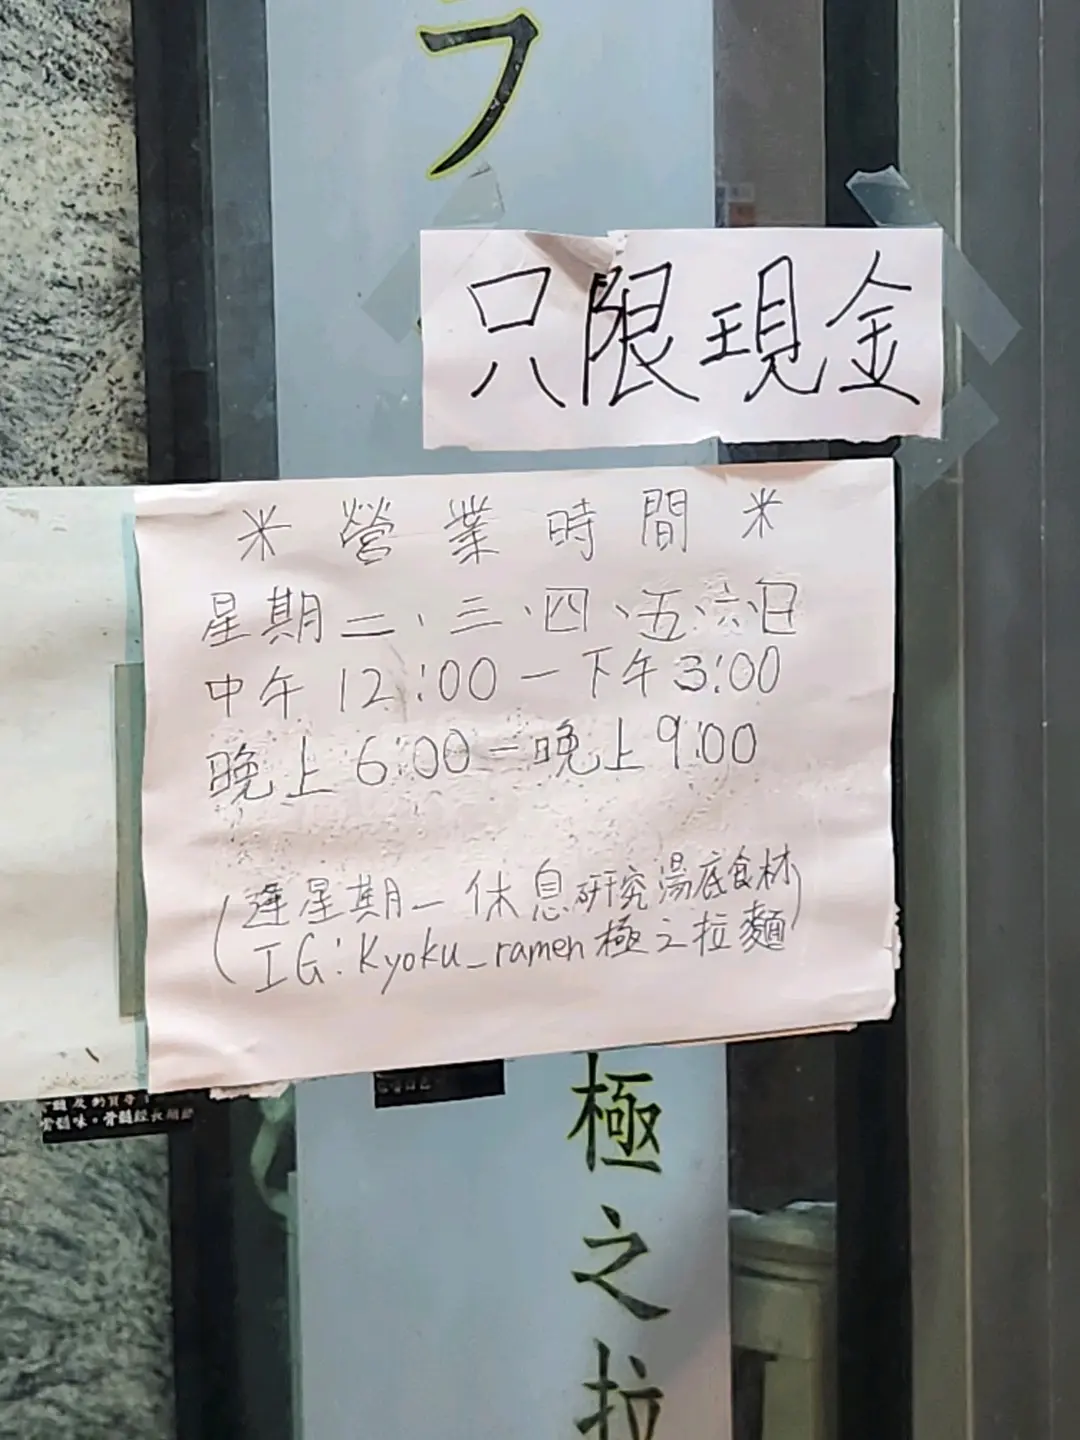 フ
只限現金
米 營業時間 米
星期二、三、四、五、六、日
中午 12:00 — 下午 3:00
晚上 6:00 — 晚上 9:00
(逢星期一休息研究湯底食材)
(IG:Kyoku_ramen 極之拉麵)
骨髓味,骨髓經長期
極之拉